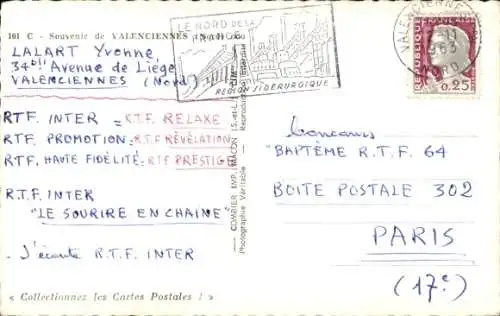 101 C - Souvenir de VALENCIENNES (Nord)
LALART Yvonne
34bis Avenue de Liége
VALENCIENNES (Nord)
R.T.F. INTER = R.T.F. RELAXE
R.T.F. PROMOTION = R.T.F RÉVÉLATION
R.T.F. HAUTE FIDÉLITÉ : RTF PRESTIGE
R.T.F. INTER
"LE SOURIRE EN CHAINE"
- J'écoute R.T.F INTER
« Collectionnez les Cartes Postales ! »
COMBIER IMP. MACON (S.-et-L.)
Photographie Véritable - Reproduction
LE NORD DE LA
REGION SIDERURGIQUE
VALENCIENNES
REPUBLIQUE FRANÇAISE
0,25
Concours
"BAPTÊME R.T.F. 64
BOITE POSTALE 302
PARIS
(17e)